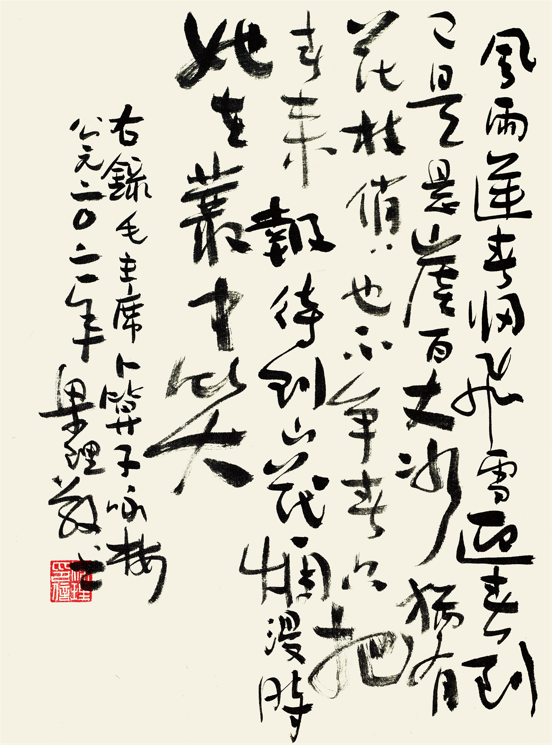 風雨送春归飛雪迎春到
已是悬崖百丈冰猶有
花枝俏〻也不争春只把
春来報待到山花爛漫時
她在叢中笑
右錄毛主席卜算子咏梅
公元二〇二二年